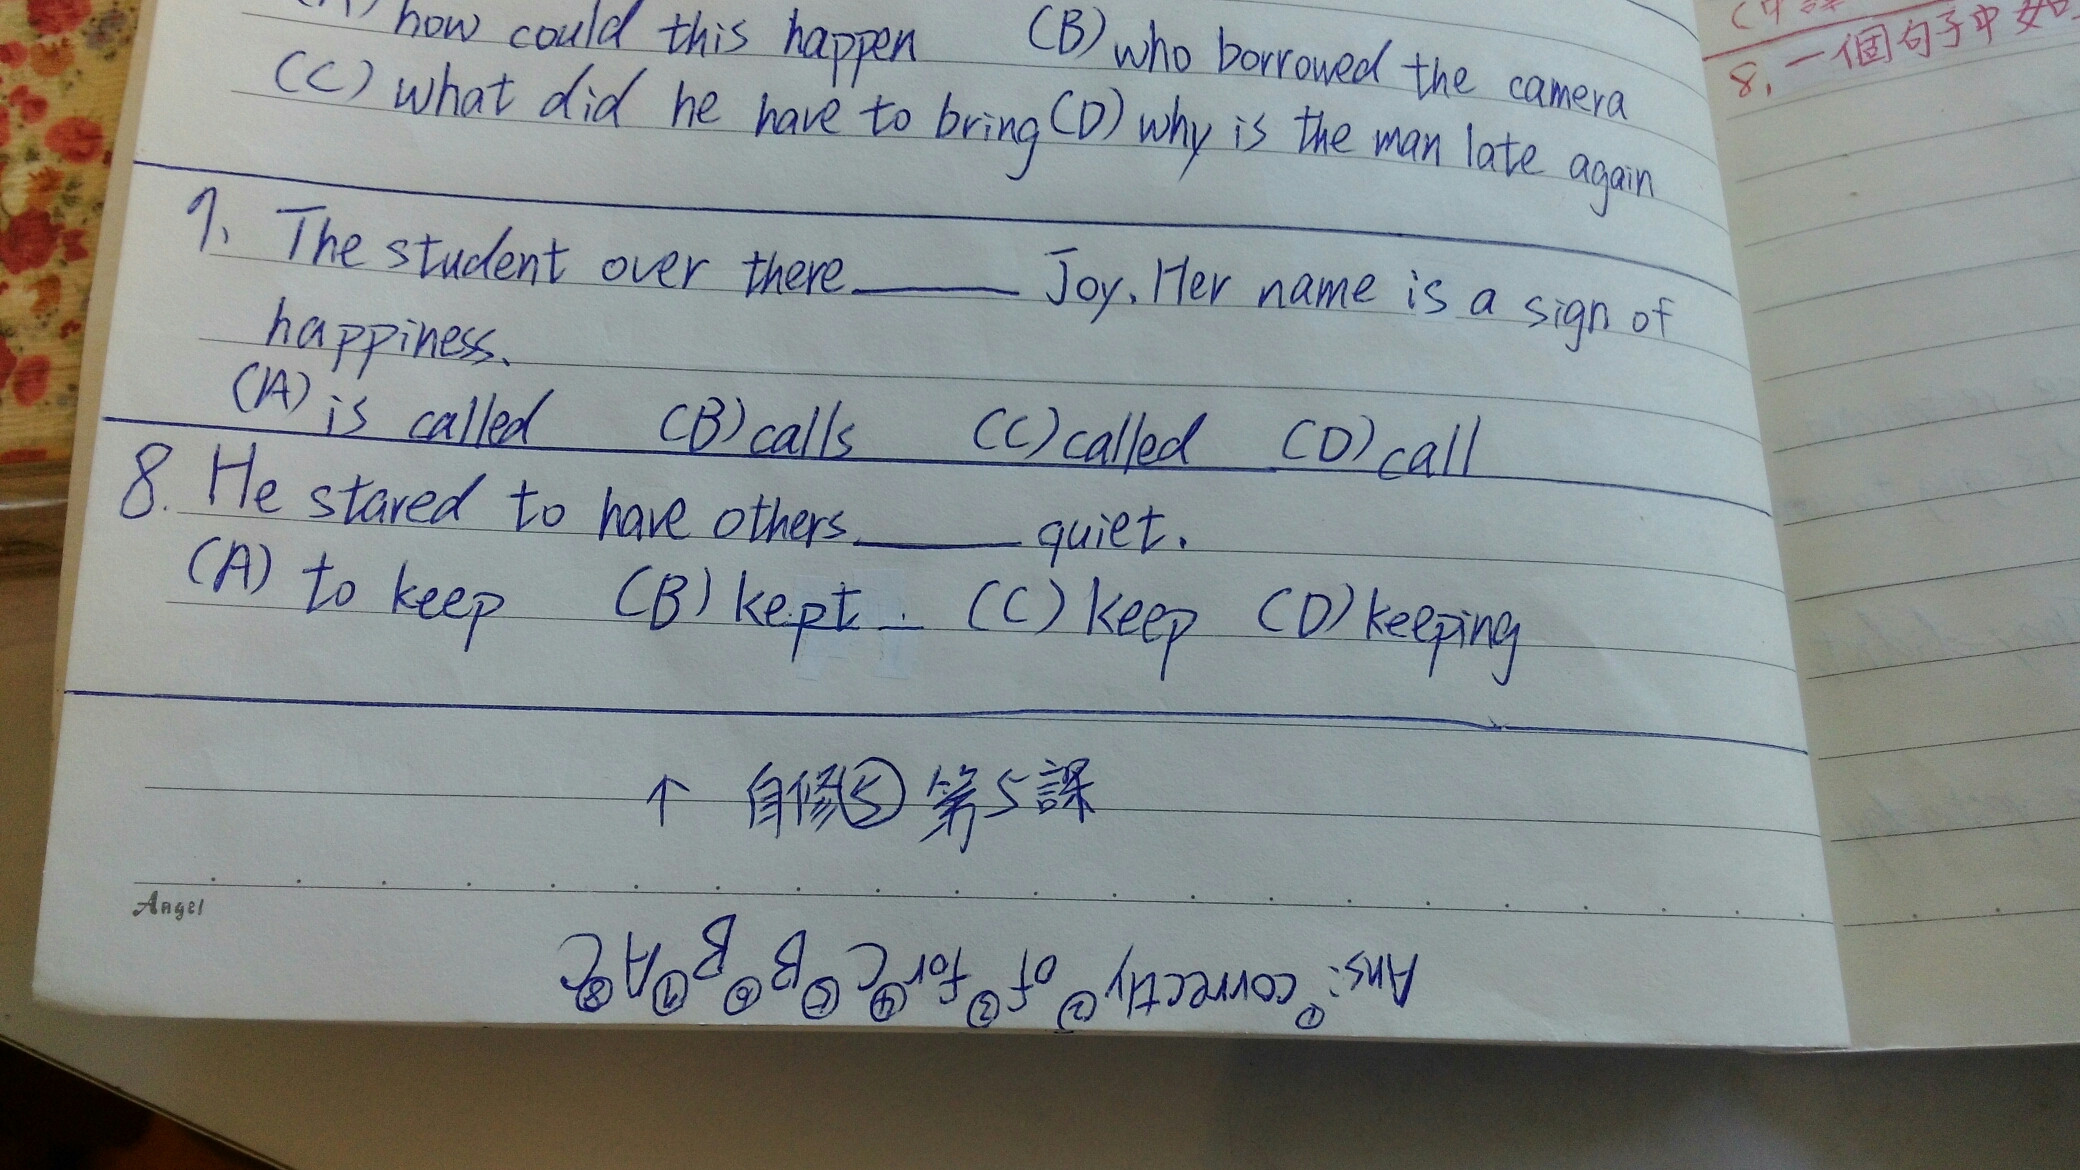 how could this happen (B) who borrowed the camera
(C) what did he have to bring (D) why is the man late again
7. The student over there ______ Joy. Her name is a sign of
happiness.
(A) is called (B) calls (C) called (D) call
8. He stared to have others ______ quiet.
(A) to keep (B) kept (C) keep (D) keeping
↑ 自修⑤ 第5課
Angel
Ans: ①correctly ②of ③for ④C ⑤B ⑥B ⑦A ⑧C
8. 一個句子中